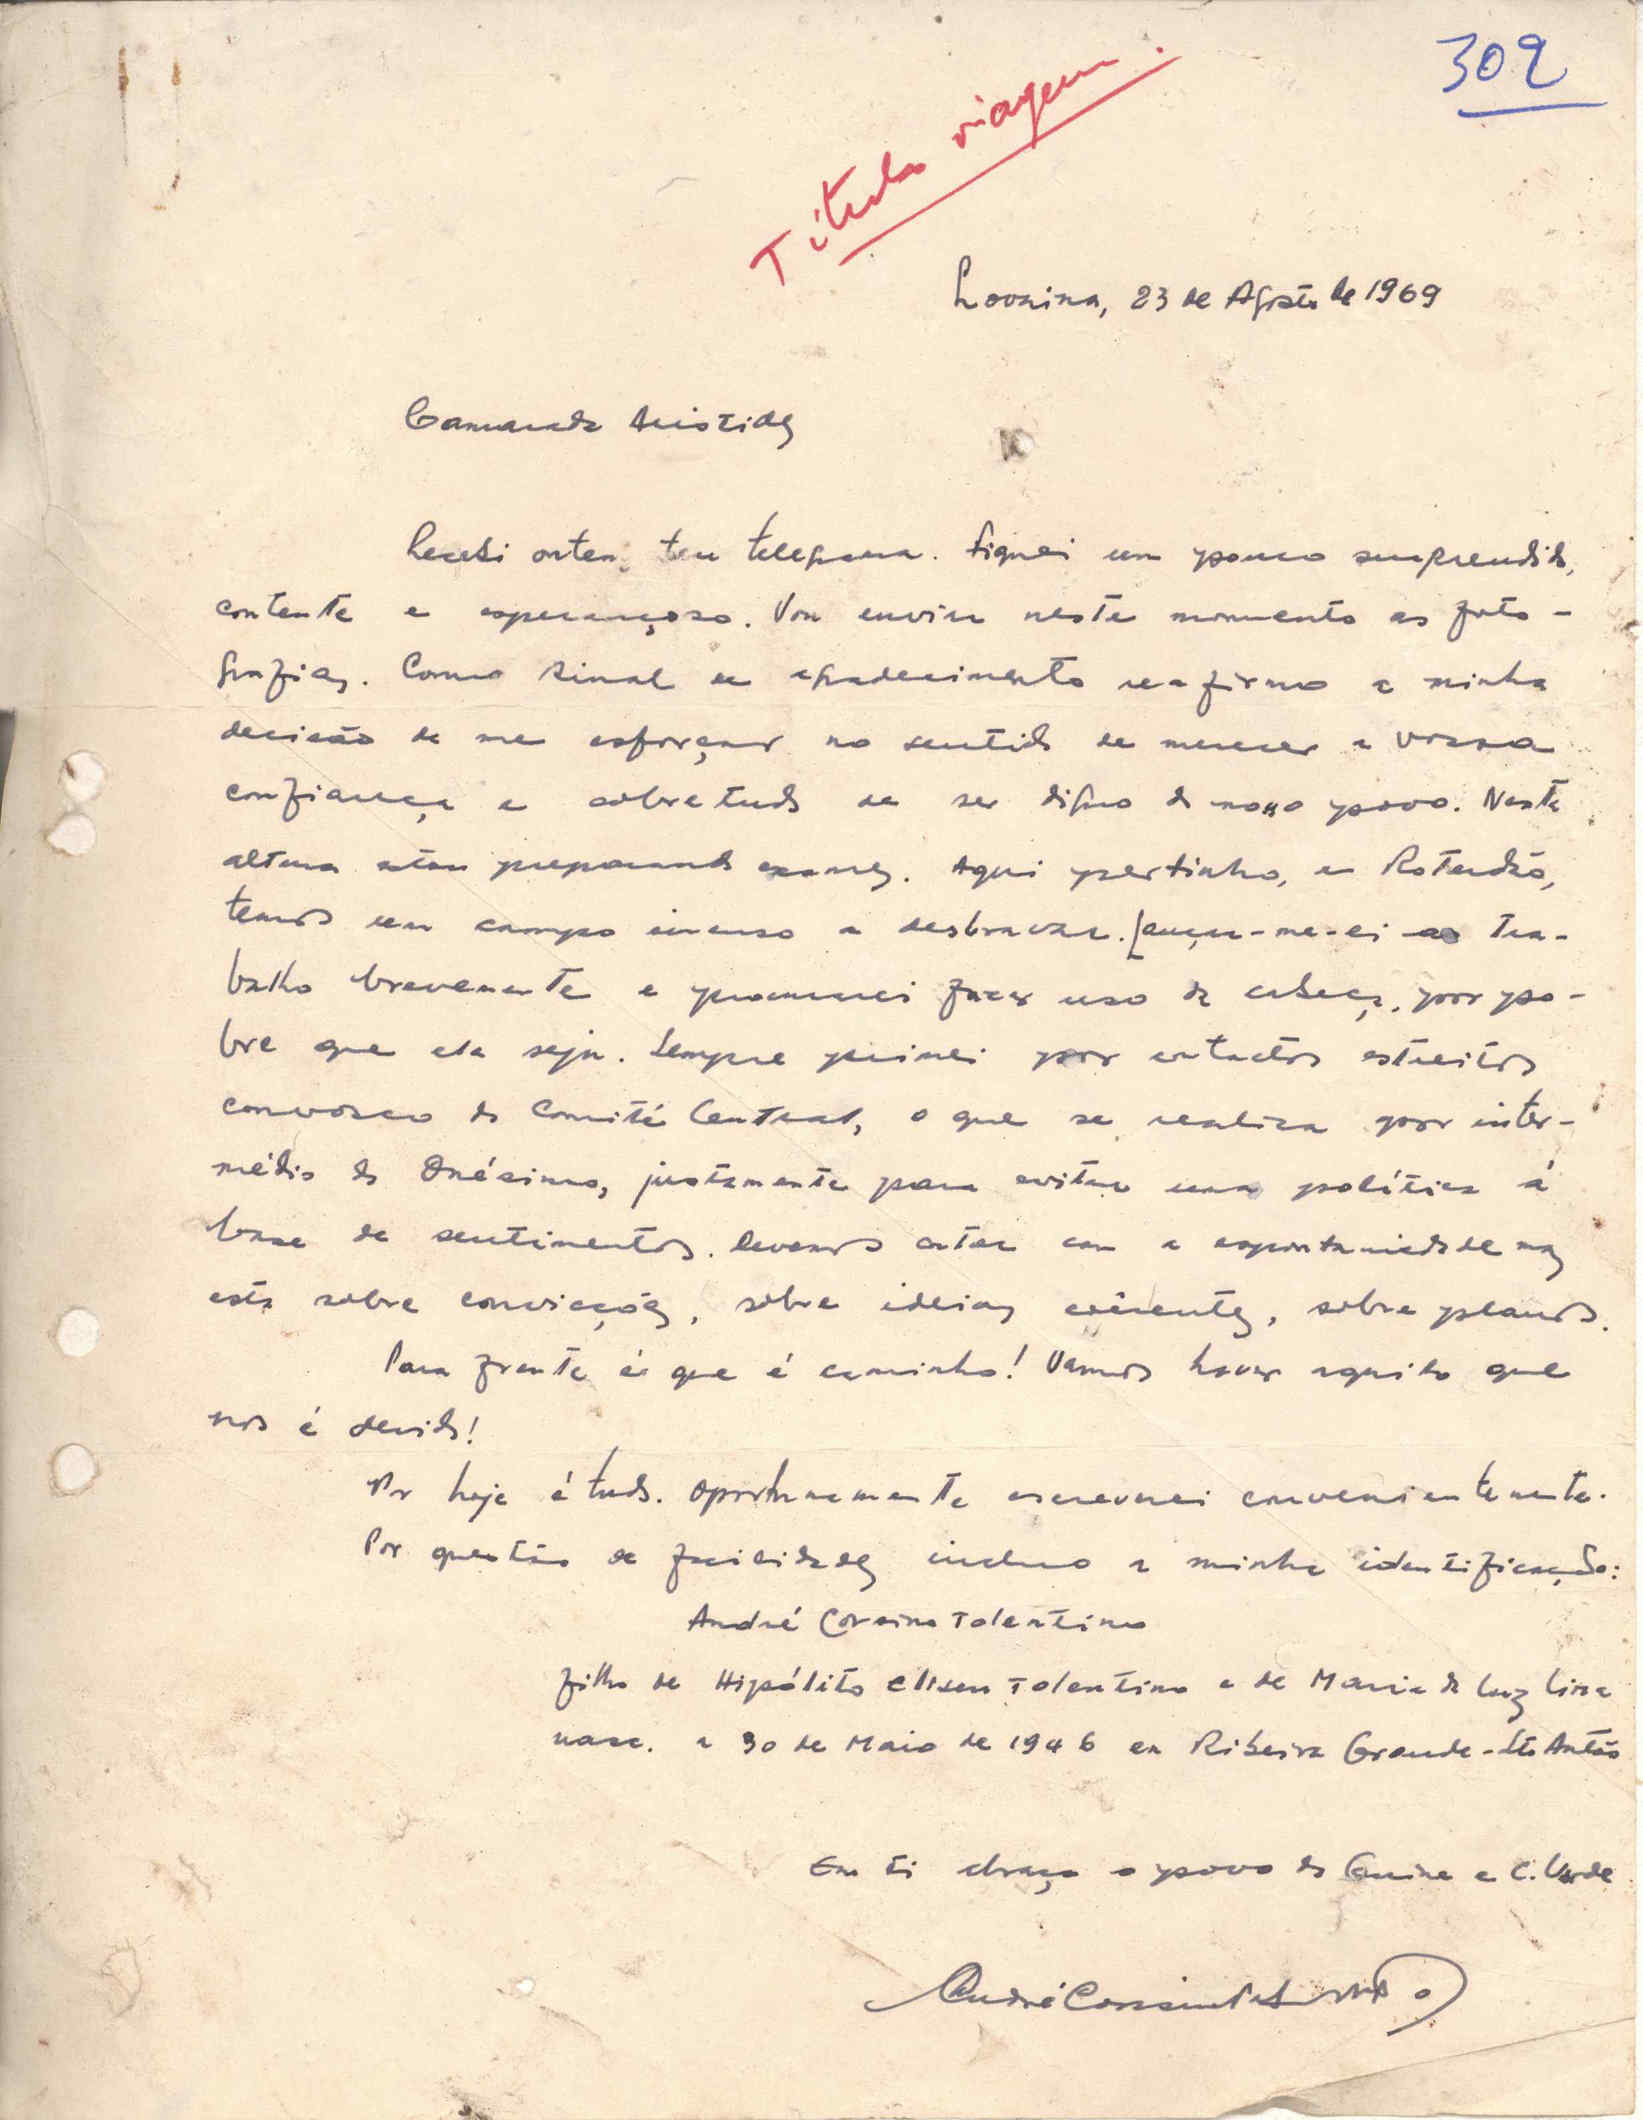 302
Título viagem.
Lovaina, 23 de Agosto de 1969
Camarada Aristides
Recebi ontem teu telegrama. Fiquei um pouco surpreendido,
contente e esperançoso. Vou enviar neste momento as foto-
grafias. Como sinal de agradecimento reafirmo a minha
decisão de me esforçar no sentido de merecer a vossa
confiança e sobretudo de ser digno do nosso povo. Nesta
altura estou preparando exames. Aqui pertinho, em Roterdão,
temos um campo imenso a desbravar. Lançar-me-ei ao tra-
balho brevemente e procurarei fazer uso da cabeça, por po-
bre que ela seja. Sempre primei por contactos estreitos
convosco do Comité Central, o que se realiza por inter-
médio do Onésimo, justamente para evitar uma política á
base de sentimentos. Devemos contar com a espontaniedade mas
esta sobre convicções, sobre ideias coerentes, sobre planos.
Para frente é que é caminho! Vamos haver aquilo que
nos é devido!
Por hoje é tudo. Oportunamente escreverei convenientemente.
Por questão de facilidades incluo a minha identificação:
André Corsino Tolentino
filho de Hipólito Eliseu Tolentino e de Maria da Luz Lima
nasc. a 30 de Maio de 1946 em Ribeira Grande - Sto Antão
Em ti abraço o povo da Guine e C. Verde
André Corsino Tolentino